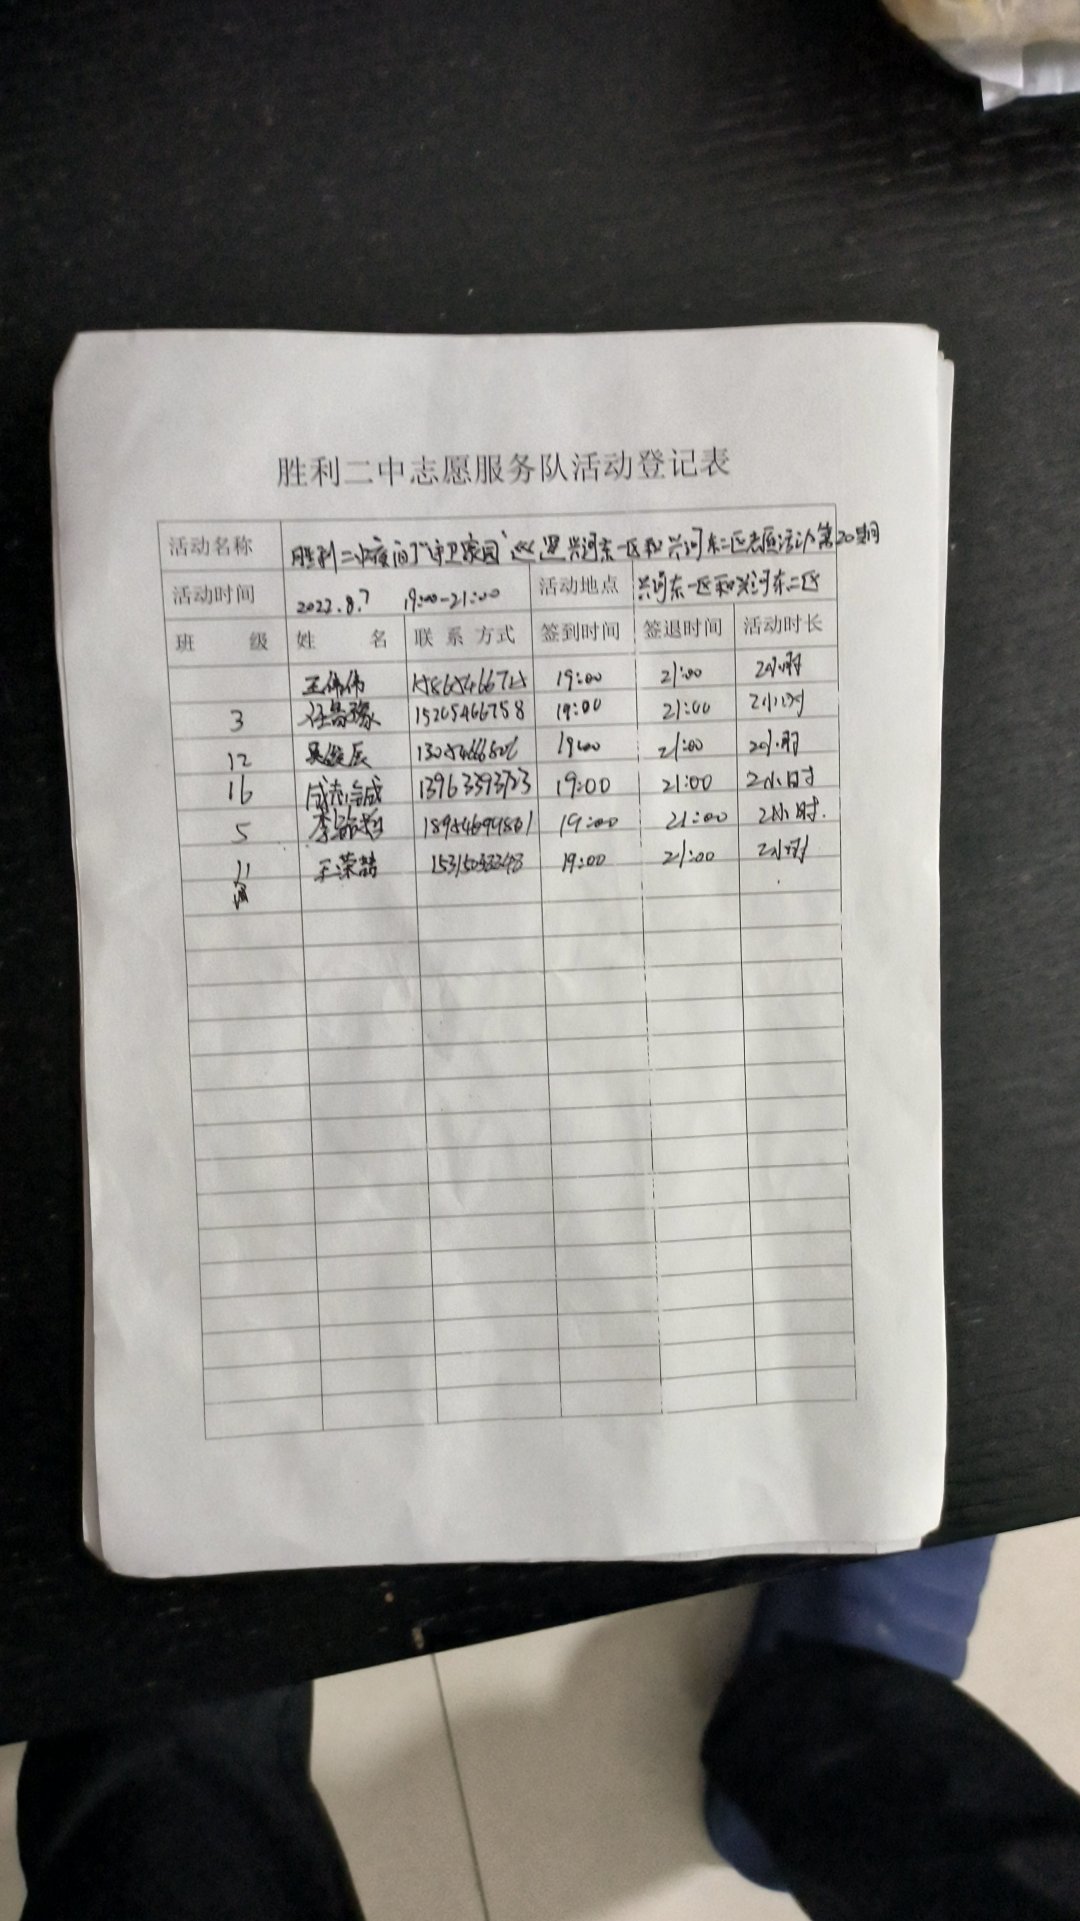 胜利二中志愿服务队活动登记表
活动名称 胜利二中夜间"守卫家园"巡逻兴河东一区和兴河东二区志愿活动第20期
活动时间 2022.8.7 19:00-21:00 活动地点 兴河东一区和兴河东二区
班 级 姓 名 联系方式 签到时间 签退时间 活动时长
王伟伟 19:00 21:00 2小时
3 15205466758 19:00 21:00 2小时
12 19:00 21:00 2小时
16 13963393723 19:00 21:00 2小时
5 19:00 21:00 2小时.
11 王荣喆 19:00 21:00 2小时